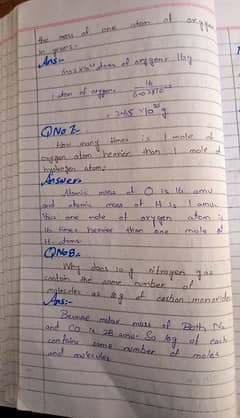 the mass of one atom of oxygen
in grams:
Ans:-
6.02x10²³ atoms of oxygen = 16g
1 atom of oxygen = 16
6.02x10²³
= 2.65 x10
Q No 7:-
How many times is 1 mole of
oxygen atom heavier than 1 mole of
hydrogen atom:
Answer:-
Atomic mass of O is 16 amu
and atomic mass of H is 1 amu.
thus one mole of oxygen atom is
16 times heavier than one mole of
H. atoms
Q No 8:-
Why does 10g nitrogen gas
contain the same number of
molecules as 10g of carbon monoxide
Ans:-
Because molar mass of Both N₂
and CO is 28 amu. So 10g of each
contains same number of moles
and molecules.